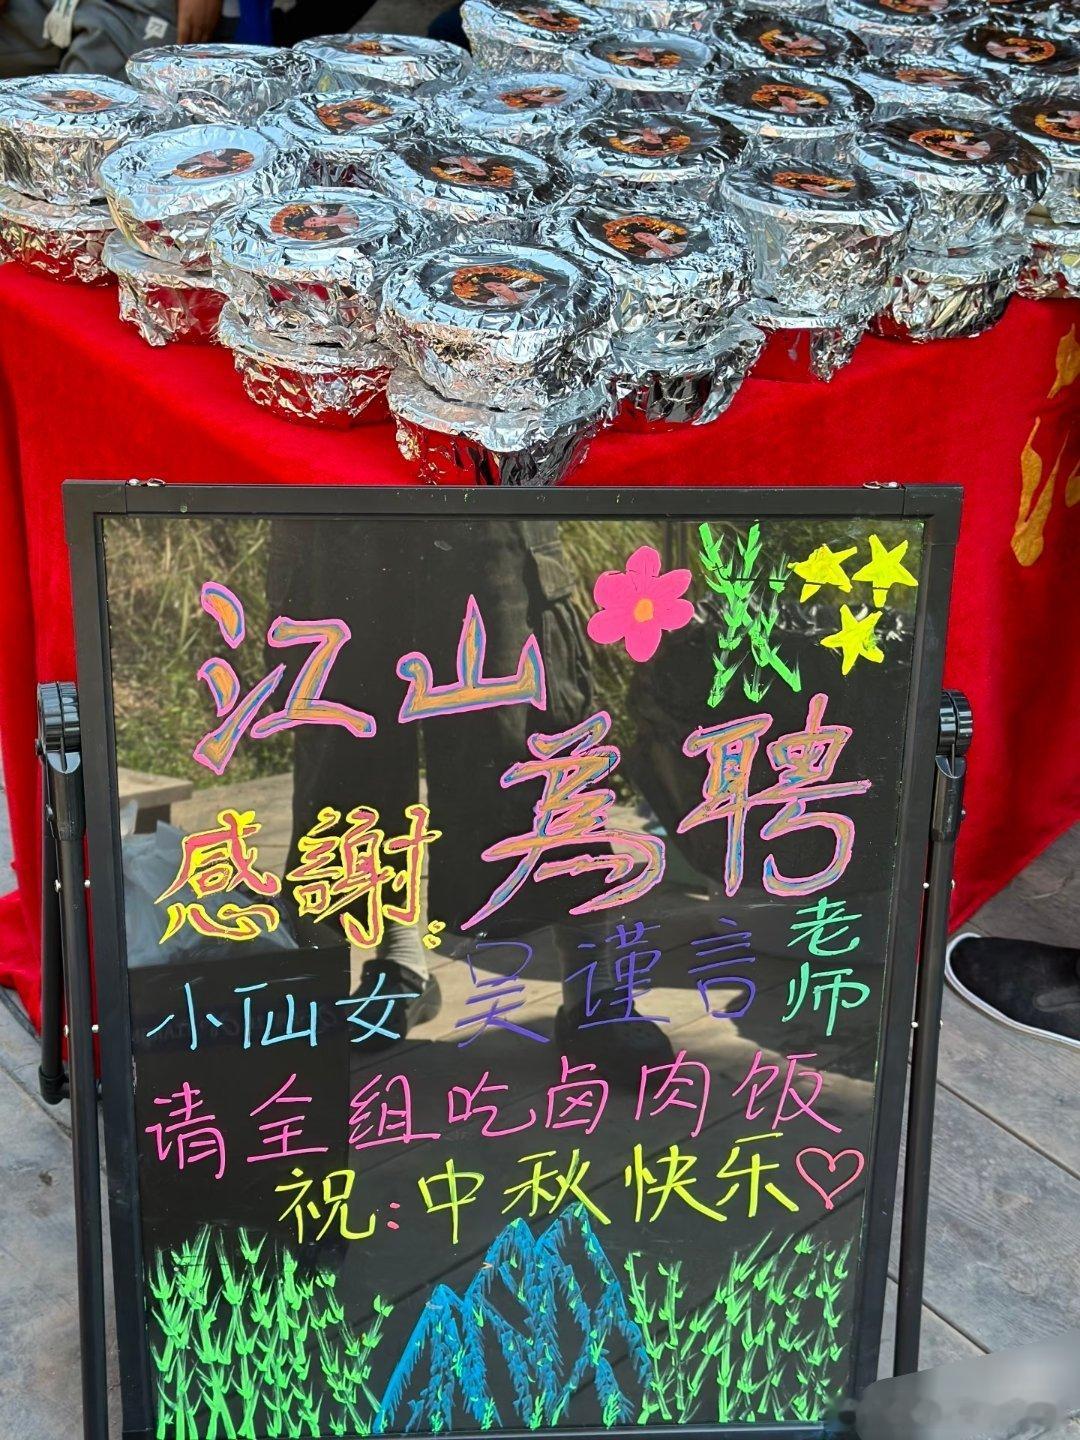 江山
為聘
感謝:
小仙女吴谨言老师
请全组吃卤肉饭
祝:中秋快乐